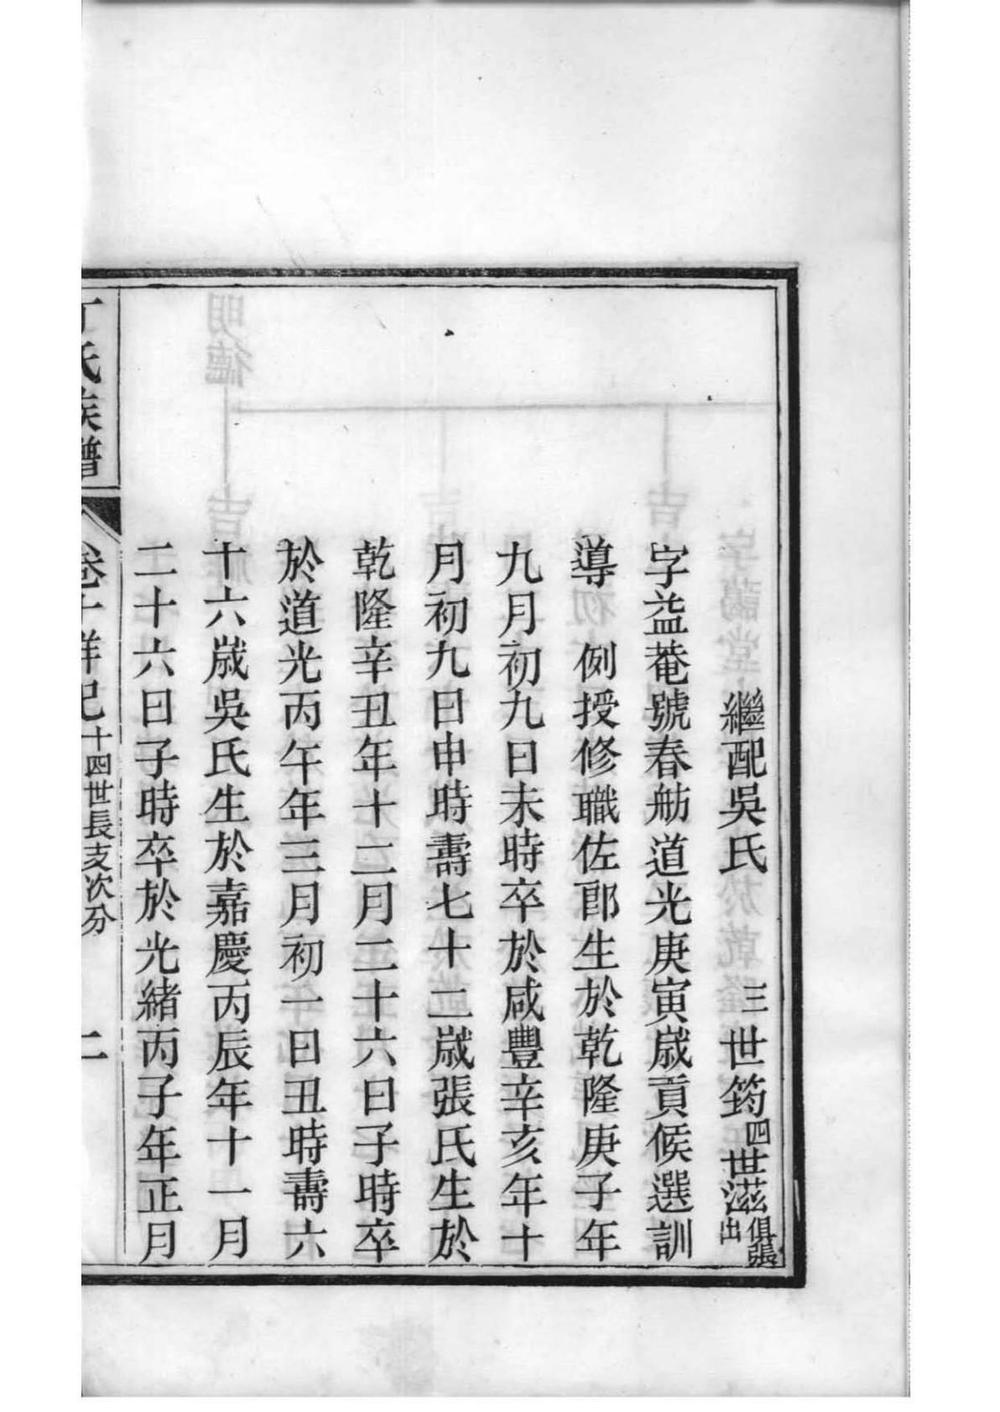 繼配吳氏　三世筠四世滋俱張出
字益菴號春舫道光庚寅歲貢候選訓
導　例授修職佐郎生於乾隆庚子年
九月初九日未時卒於咸豐辛亥年十
月初九日申時壽七十二歲張氏生於
乾隆辛丑年十二月二十六日子時卒
於道光丙午年三月初一日丑時壽六
十六歲吳氏生於嘉慶丙辰年十一月
二十六日子時卒於光緒丙子年正月
丁氏族譜　卷十詳記十四世長支次分　二